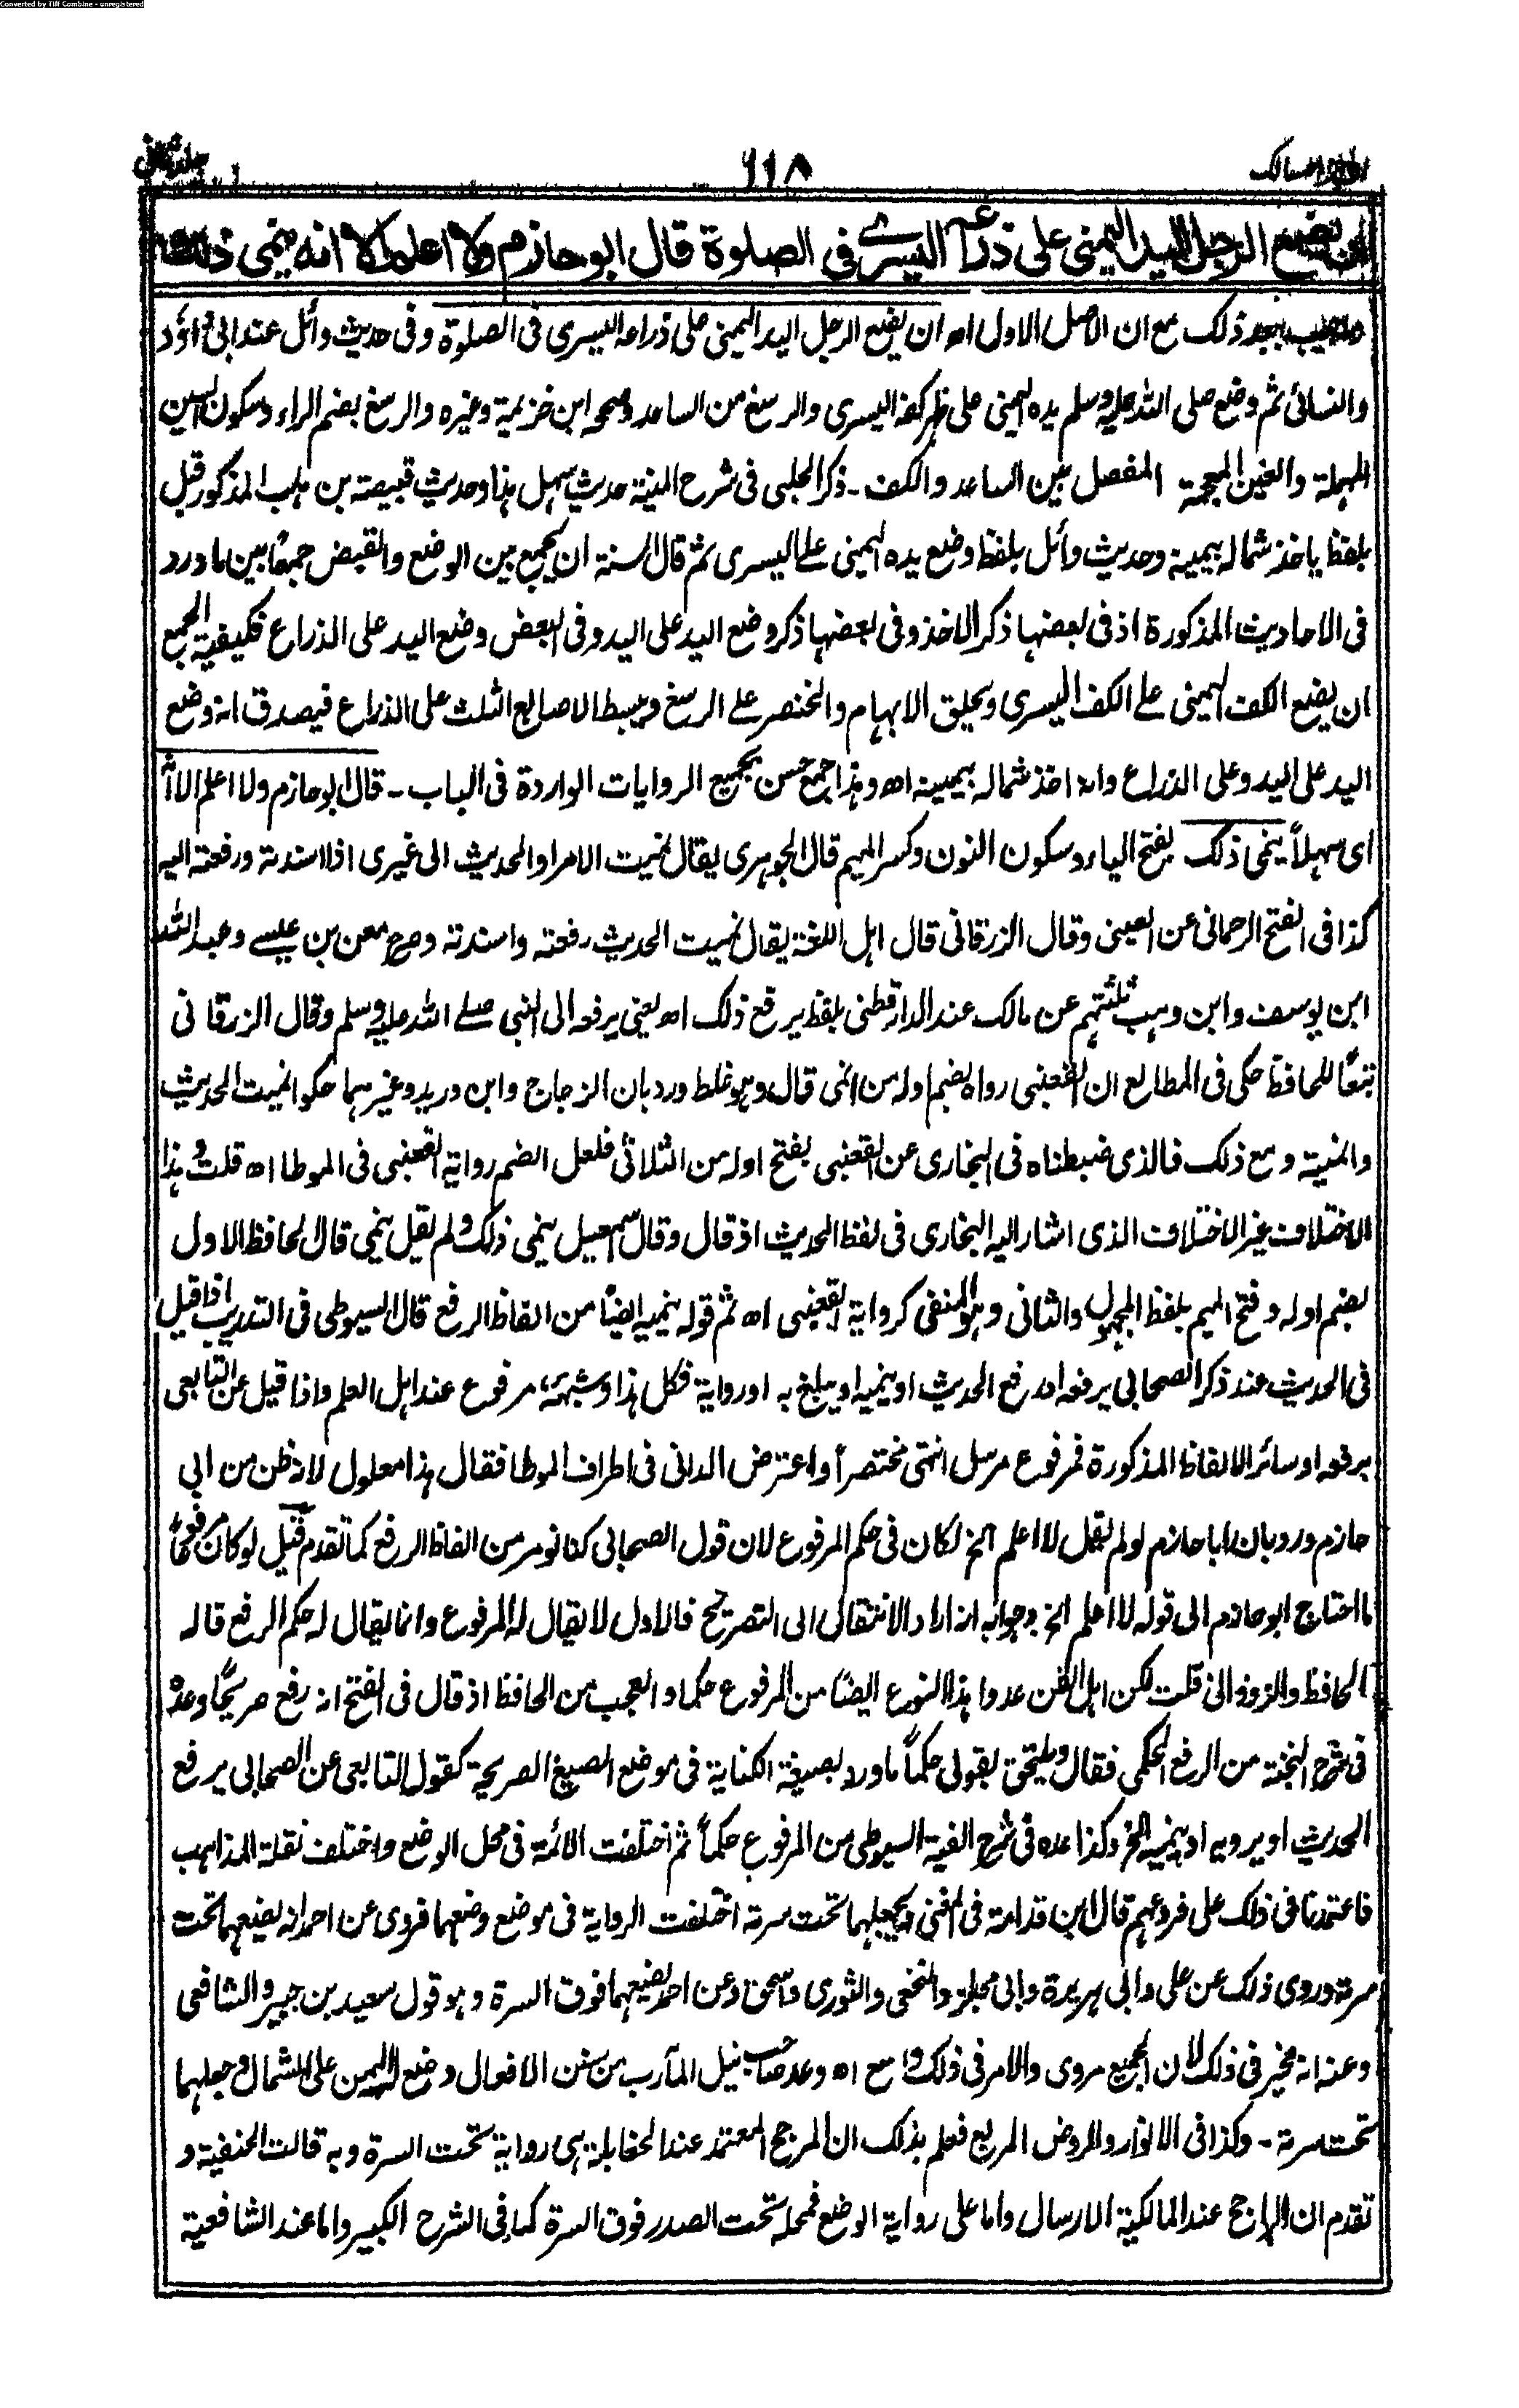 Converted by Tiff Combine - unregistered
المسالك
١١٨
ان يضع الرجل اليد اليمنى على ذراعه اليسرى فى الصلوة قال ابو حازم ولا اعلم الا انه ينمى ذلك
بعد ذلك مع ان الاصل الاول اھ ان يضع الرجل اليد اليمنى على ذراعه اليسرى فى الصلوة وفى حديث وائل عند ابى داؤد
والنسائى ثم وضع صلى الله عليه وسلم يده اليمنى على ظهر كفه اليسرى والرسغ من الساعد وصححه ابن خزيمة وغيره والرسغ بضم الراء وسكون السين
المهملة والغين المعجمة المفصل بين الساعد والكف - ذكر الحلبى فى شرح المنية حديث سهل هذا وحديث قبيصة بن هلب المذكور قبل
بلفظ ياخذ شماله بيمينه وحديث وائل بلفظ وضع يده اليمنى على اليسرى ثم قال السنة ان يجمع بين الوضع والقبض جمعًا بين ما ورد
فى الاحاديث المذكورة اذ فى بعضها ذكر الاخذ وفى بعضها ذكر وضع اليد على اليد وفى البعض وضع اليد على الذراع فكيفية الجمع
ان يضع الكف اليمنى على الكف اليسرى ويحلق الابهام والخنصر على الرسغ ويبسط الاصابع الثلث على الذراع فيصدق انه وضع
اليد على اليد وعلى الذراع وانه اخذ شماله بيمينه اھ وهذا جمع حسن بجميع الروايات الواردة فى الباب - قال ابو حازم ولا اعلم الا انه
اى سهلاً ينمى ذلك بفتح الياء وسكون النون وكسر الميم قال الجوهرى يقال نميت الامر او الحديث الى غيرى اذا اسندته ورفعته اليه
كذا فى الفتح الرحمانى عن العينى وقال الزرقانى قال اهل اللغة يقال نميت الحديث رفعته واسندته وصرح معن بن عيسى وعبد الله
ابن يوسف وابن وهب ثلثتهم عن مالك عند الدارقطنى بلفظ يرفع ذلك اھ يعنى يرفعه الى النبى صلى الله عليه وسلم وقال الزرقانى
تبعًا للحافظ حكى فى المطالع ان القعنبى رواه بضم اوله من انمى قال وهو غلط ورد بان الزجاج وابن دريد وغيرهما حكوا نميت الحديث
وانميته ومع ذلك فالذى ضبطناه فى البخارى عن القعنبى بفتح اوله من الثلاثى فلعل الضم رواية القعنبى فى الموطا اھ قلت وهذا
الاختلاف غير الاختلاف الذى اشار اليه البخارى فى لفظ الحديث اذ قال وقال اسمعيل ينمى ذلك ولم يقل ينمى قال الحافظ الاول
بضم اوله وفتح الميم بلفظ المجهول والثانى وهو المنفى كرواية القعنبى اھ ثم قوله ينميه ايضًا من الفاظ الرفع قال السيوطى فى التدريب اذا قيل
فى الحديث عند ذكر الصحابى يرفعه او رفع الحديث او ينميه او يبلغ به او رواية فكل هذا وشبهه مرفوع عند اهل العلم واذا قيل عن التابعى
يرفعه او سائر الالفاظ المذكورة فمرفوع مرسل انتهى مختصراً واعترض الدانى فى اطراف الموطا فقال هذا معلول لانه ظن من ابى
حازم ورد بان ابا حازم لو لم يقل لا اعلم الخ لكان فى حكم المرفوع لان قول الصحابى كنا نومر من الفاظ الرفع كما تقدم قيل لو كان مرفوعًا
ما احتاج ابو حازم الى قوله لا اعلم الخ وجوابه انه اراد الانتقال الى التصريح فالاول لا يقال له المرفوع وانما يقال له حكم الرفع قاله
الحافظ والزرقانى قلت لكن اهل الفن عدوا هذا النوع ايضًا من المرفوع حكما والعجب من الحافظ اذ قال فى الفتح انه رفع صريحًا وعده
فى شرح النخبة من الرفع الحكمى فقال ويلتحق بقولى حكماً ما ورد بصيغة الكناية فى موضع الصيغ الصريحة كقول التابعى عن الصحابى يرفع
الحديث او يرويه او ينميه الخ وكذا عده فى شرح الفية السيوطى من المرفوع حكماً ثم اختلفت الائمة فى محل الوضع واختلف نقلة المذاهب
فاعتمدنا فى ذلك على فروعهم قال ابن قدامة فى المغنى ويجعلهما تحت سرته اختلفت الرواية فى موضع وضعهما فروى عن احمد انه يضعهما تحت
سرته وروى ذلك عن على وابى هريرة وابى مجلز والنخعى والثورى واسحق وعن احمد يضعهما فوق السرة وهو قول سعيد بن جبير والشافعى
وعنه انه مخير فى ذلك لان الجميع مروى والامر فى ذلك واسع اھ وعد صاحب نيل المآرب من سنن الافعال وضع اليمين على الشمال وجعلهما
تحت سرته - وكذا فى الانوار والروض المربع فعلم بذلك ان المرجح المعتمد عند الحنابلة هى رواية تحت السرة وبه قالت الحنفية و
تقدم ان الراجح عند المالكية الارسال واما على رواية الوضع فمحله تحت الصدر فوق السرة كما فى الشرح الكبير واما عند الشافعية